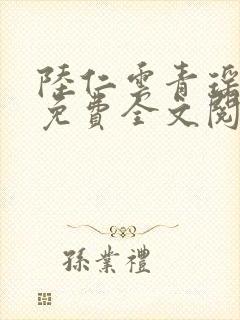 陸仁雲青瑤
免費全文閱
孫業禮